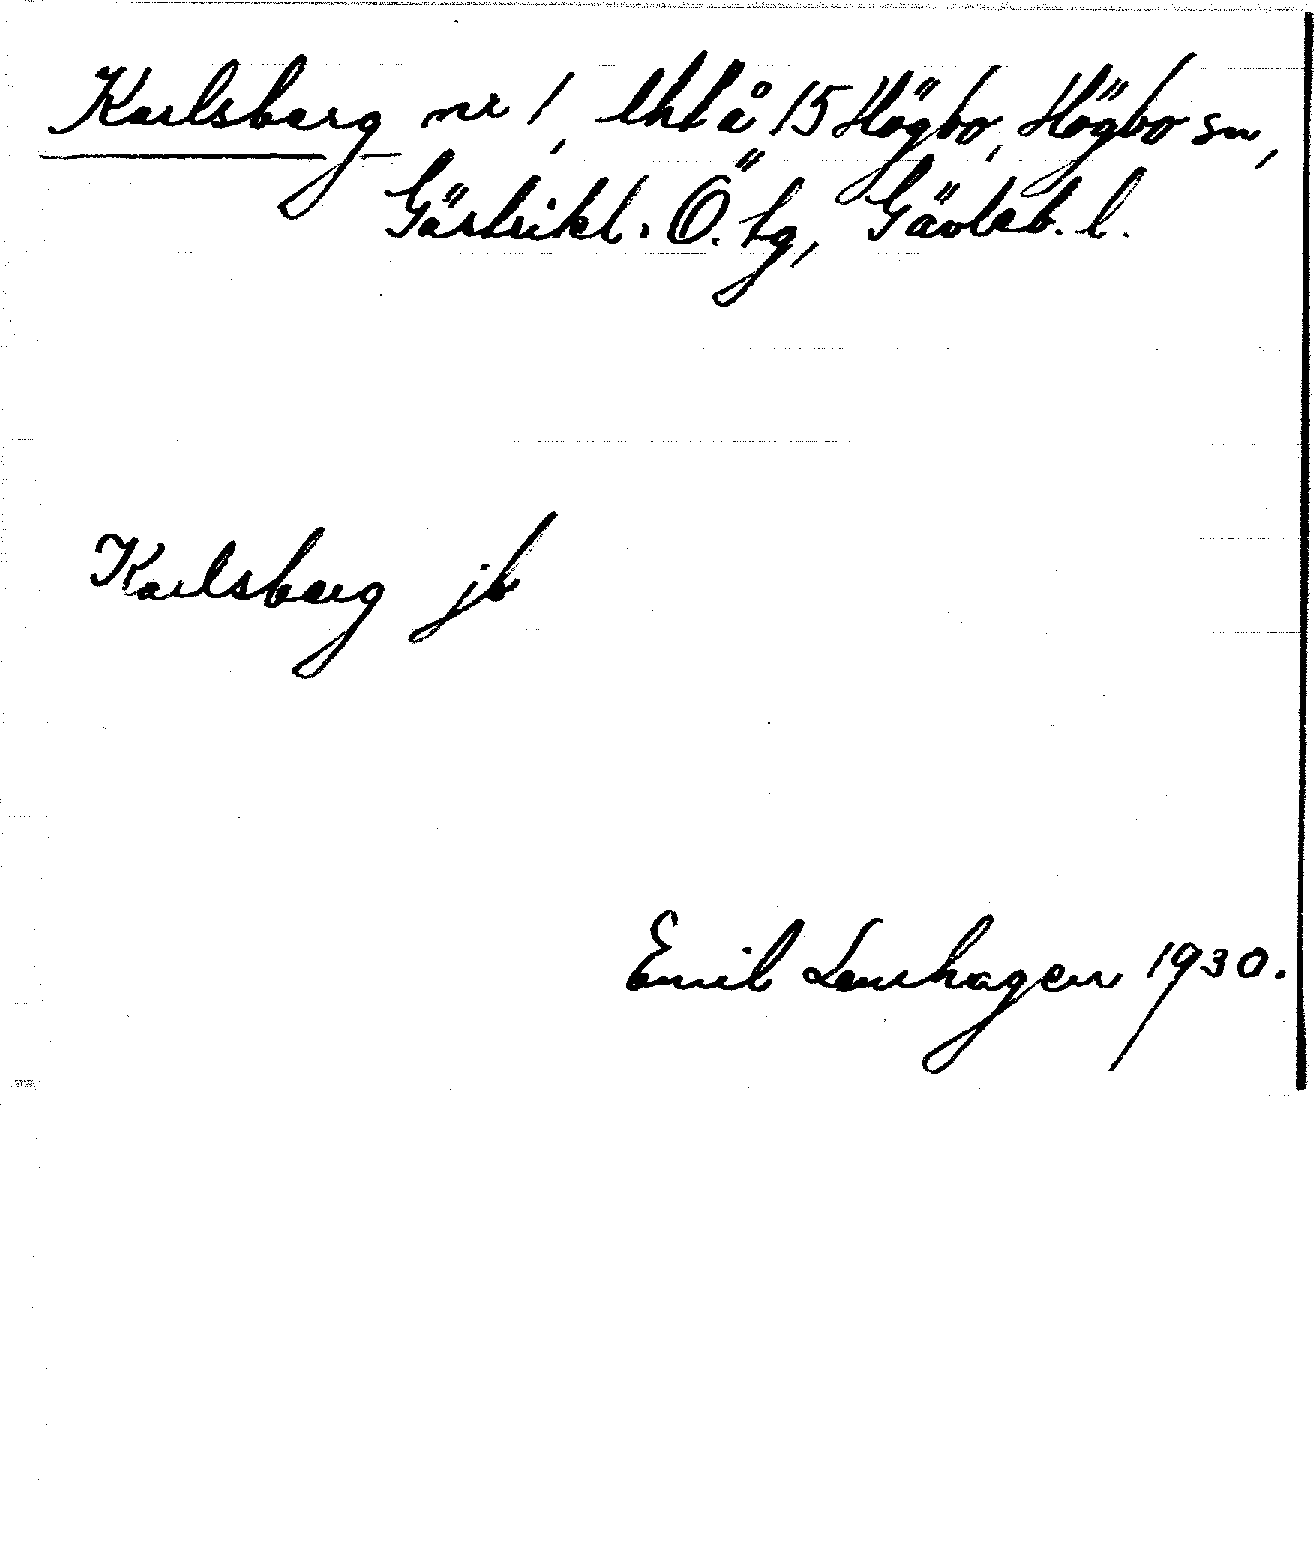 Karlsberg nr 1, lht å 15 Högbo, Högbo sn,
Gästrikl. Ö. tg, Gävleb. l.
Karlsberg jb
Emil Lenhagen 1930.